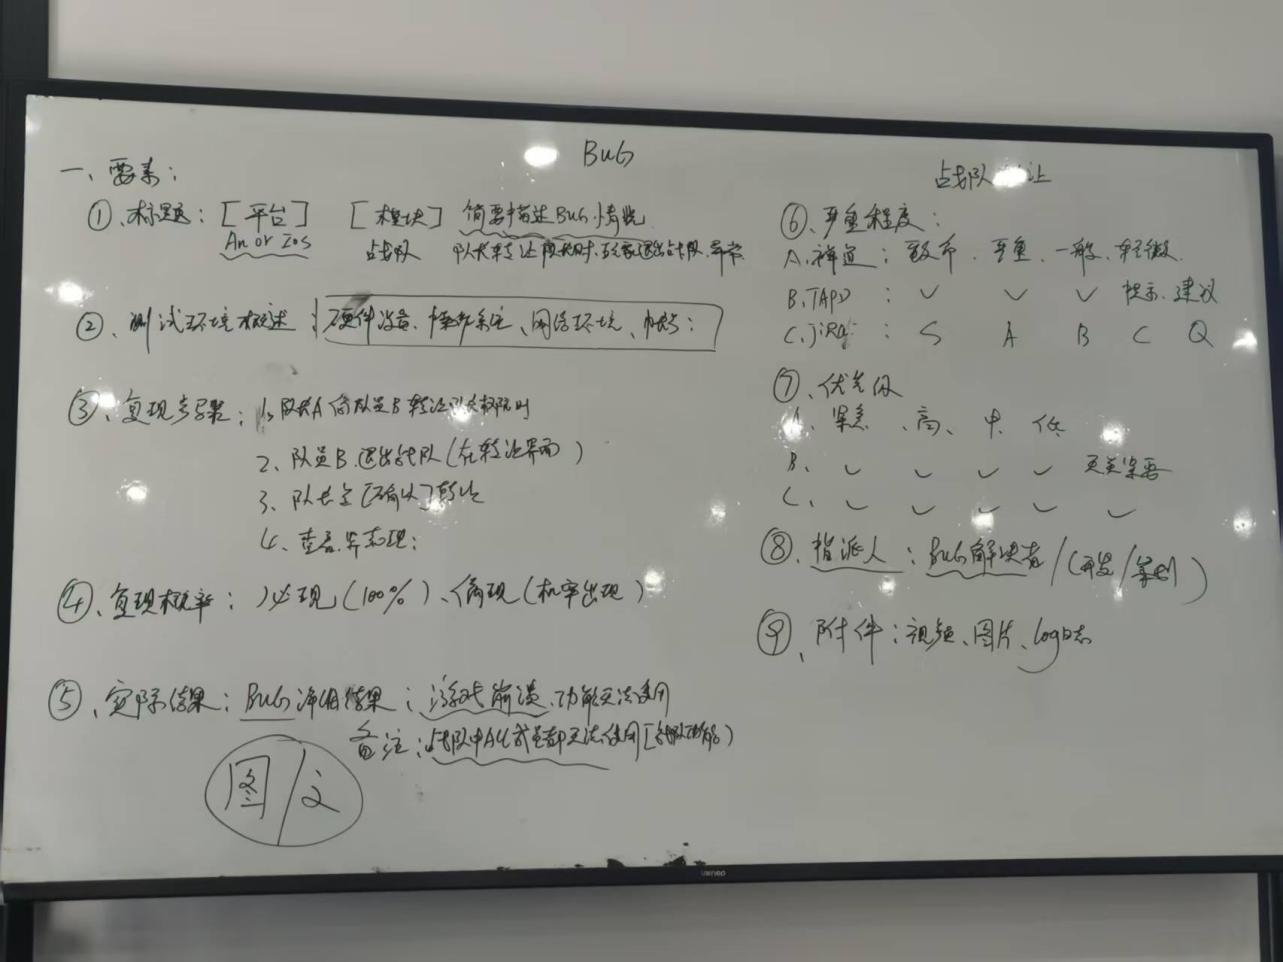 BUG
一、要素：
①、标题：[平台] [模块] 简要描述BUG情况
An or Ios 战队 队长转让队长时，玩家退出战队，异常
②、测试环境概述 硬件设备、操作系统、网络环境、帐号：
③、复现步骤：1、队长A向队员B转让队长权限时
2、队员B退出战队（在转让界面）
3、队长点[确认]转让
4、查看界面表现；
④、复现概率：必现（100%）、偶现（机率出现）
⑤、实际结果：BUG 结果；游戏崩溃、功能无法使用
备注：战队中All成员都无法使用[战队功能]
图/文
战队 让
⑥、严重程度：
A、禅道：致命、严重、一般、轻微、
B、TAPD：✓ ✓ ✓ 提示、建议
C、jiRa：S A B C Q
⑦、优先级
A、紧急、高、中、低
B、✓ ✓ ✓ ✓ 无关紧要
C、✓ ✓ ✓ ✓ ✓
⑧、指派人：BUG解决者/（研发/策划）
⑨、附件：视频、图片、log日志